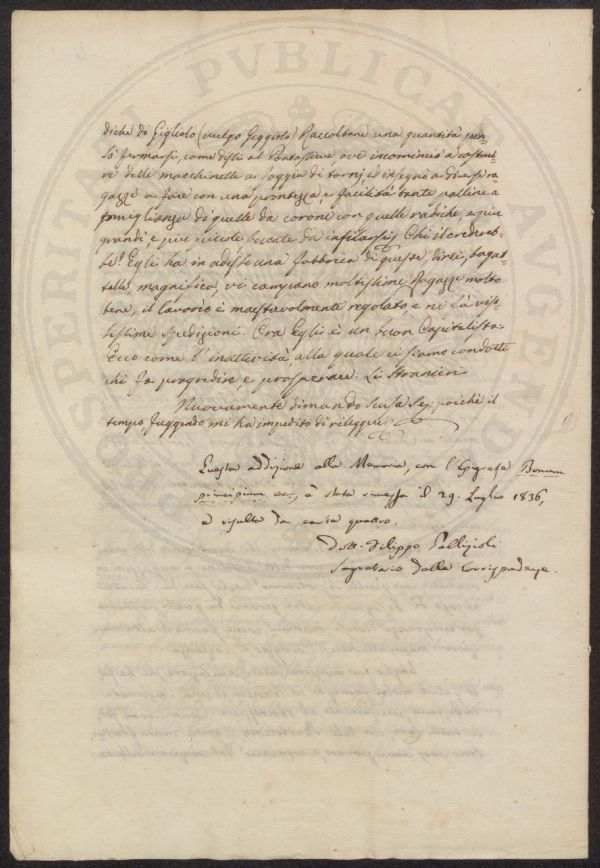 diche di Gigliolo (vulgo Geggiolo) Raccoltane una quantità pen-
sò fermarsi, come dissi al Pontassieve ove incominciò a costrui-
re delle macchinette a foggia di tornj, ed insegnò a diverse ra-
gazze a fare con una prontezza, e facilità tante palline a
somiglianza di quelle da corone con quelle radiche, e più
grandi, e più piccole bucate da infilarsi; Chi il credereb-
be? Egli ha in adesso una fabbrica di queste, dirli, bagat-
telle, magnifica, vi campano moltissime Ragazze molto
bene, il lavoro è maestrevolmente regolato, e ne fà vis-
tissime spedizioni. Ora Egli è un buon Capitalista.
Ecco come l'inattività, alla quale ci siamo condotti
chi fa progredire, e prosperare: Li Stranieri
Nuovamente dimando scusa poichè il
tempo, fuggendo mi ha impedito di rileggere
Questa addizione alla Memoria, con l'Epigrafe Bonum
principium ec., è stata rimessa il 29. Luglio 1836,
e risulta da carte quattro.
Dott. Filippo Gallizioli
Segretario delle Corrispondenze.
PROSPERITATI PVBLICAE AVGENDAE